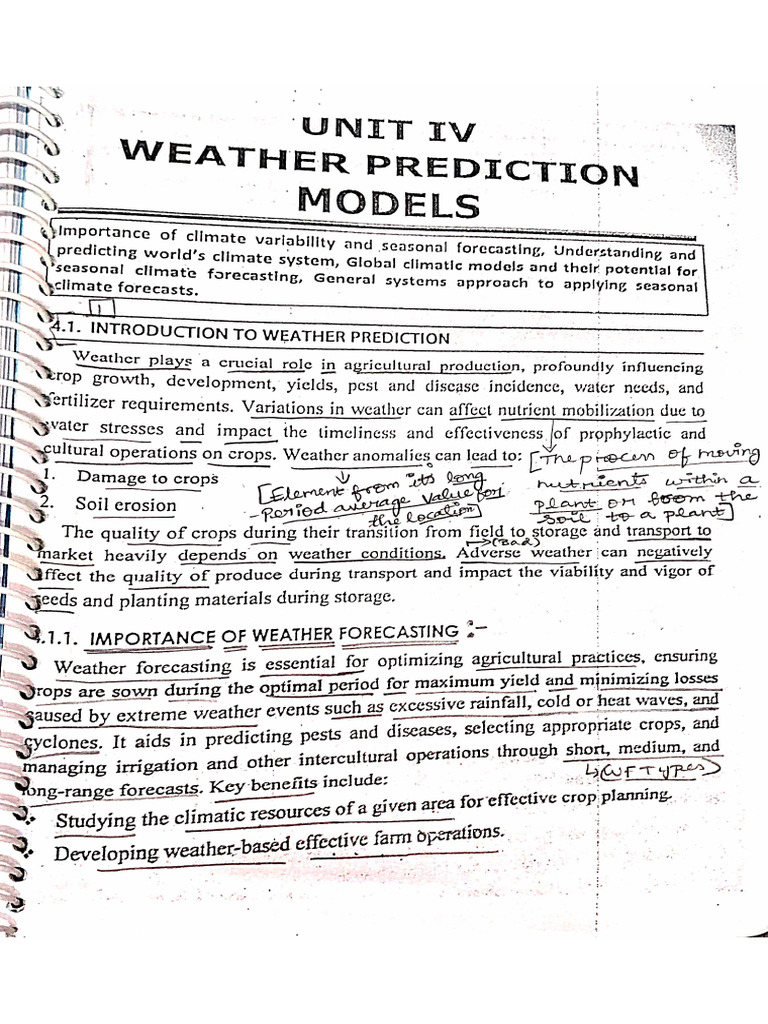 UNIT IV
WEATHER PREDICTION
MODELS
Importance of climate variability and seasonal forecasting, Understanding and
predicting world's climate system, Global climatic models and their potential for
seasonal climate forecasting, General systems approach to applying seasonal
climate forecasts.
1
4.1. INTRODUCTION TO WEATHER PREDICTION
Weather plays a crucial role in agricultural production, profoundly influencing
crop growth, development, yields, pest and disease incidence, water needs, and
fertilizer requirements. Variations in weather can affect nutrient mobilization due to
water stresses and impact the timeliness and effectiveness of prophylactic and
cultural operations on crops. Weather anomalies can lead to:
[The process of moving
nutrients within a
plant or from the
soil to a plant]
1. Damage to crops
2. Soil erosion
[Element from its long
-Period average value for
the location]
The quality of crops during their transition from field to storage and transport to
market heavily depends on weather conditions. Adverse weather can negatively
(Bad)
affect the quality of produce during transport and impact the viability and vigor of
seeds and planting materials during storage.
4.1.1. IMPORTANCE OF WEATHER FORECASTING :-
Weather forecasting is essential for optimizing agricultural practices, ensuring
crops are sown during the optimal period for maximum yield and minimizing losses
caused by extreme weather events such as excessive rainfall, cold or heat waves, and
cyclones. It aids in predicting pests and diseases, selecting appropriate crops, and
managing irrigation and other intercultural operations through short, medium, and
long-range forecasts. Key benefits include:
↳(WF Types)
❖ Studying the climatic resources of a given area for effective crop planning.
❖ Developing weather-based effective farm operations.